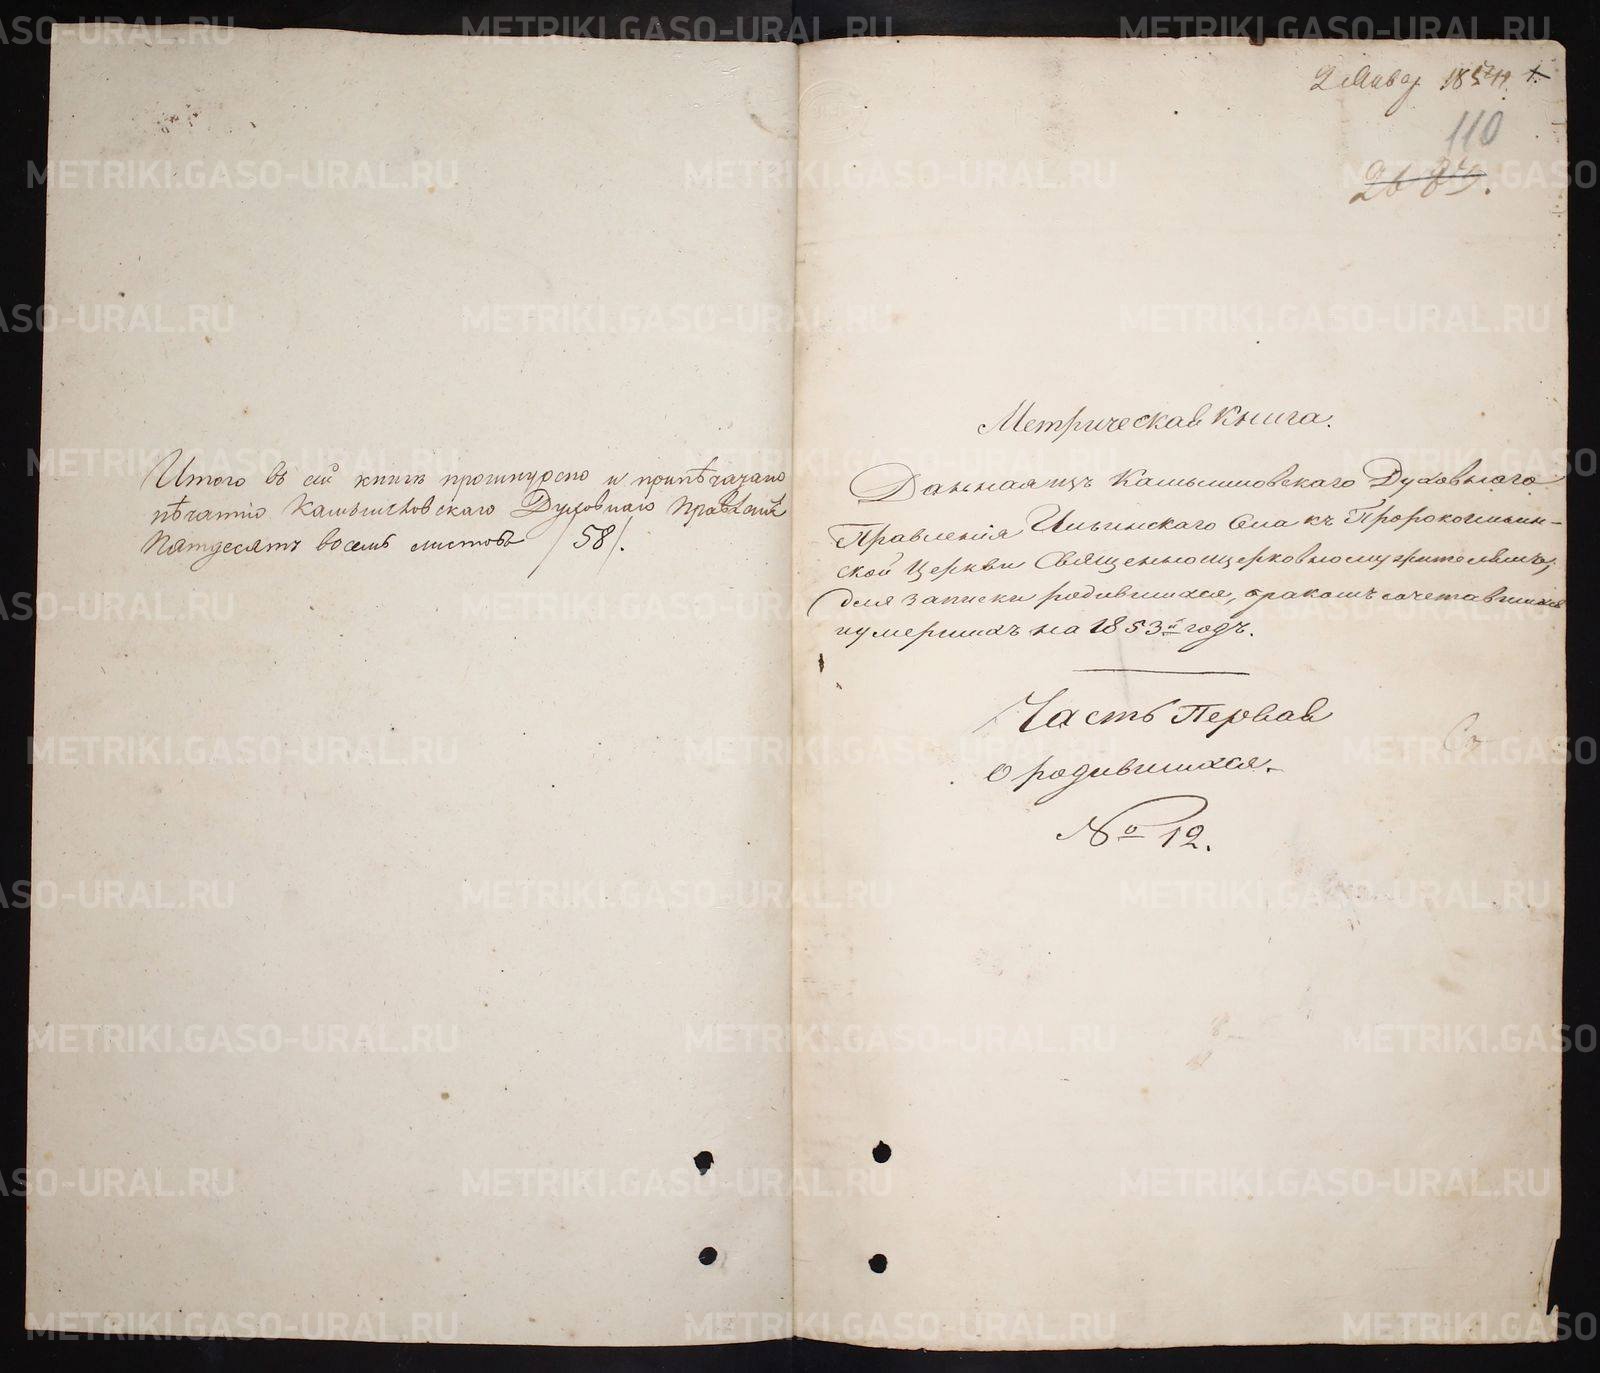 Итого въ сей книгѣ прошнурено и припѣчатано
пѣчатью Камышловскаго Духовнаго Правленія
пятдесятъ восемь листовъ /58/.
2 Январ. 1854 г.
110
Метрическая Книга.
Данная изъ Камышловскаго Духовнаго
Правленія Ильинскаго Села къ Пророкоильин-
ской Церкви Священноцерковнослужителямъ,
для записки родившихся, бракомъ сочетавшихся
и умершихъ на 1853й годъ.
Часть Первая
о родившихся.
№ 12.
METRIKI.GASO-URAL.RU